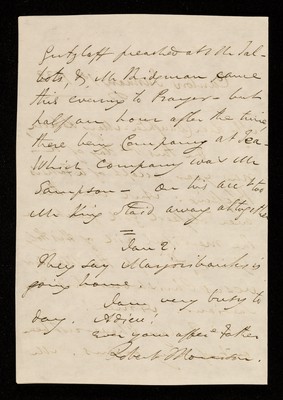 Gutzlaff preached at Mr Tal-
bots, & Mr Bridgman came
this evening to Prayer - but
half an hour after the time,
there being Company at Tea -
Which Company was Mr
Sampson - On his acct too
Mr King staid away altogether
=
Jan 2.
They say Marjoribanks is
going home.
I am very busy to
day. Adieu!
Ever your affece Father
Robert Morrison.